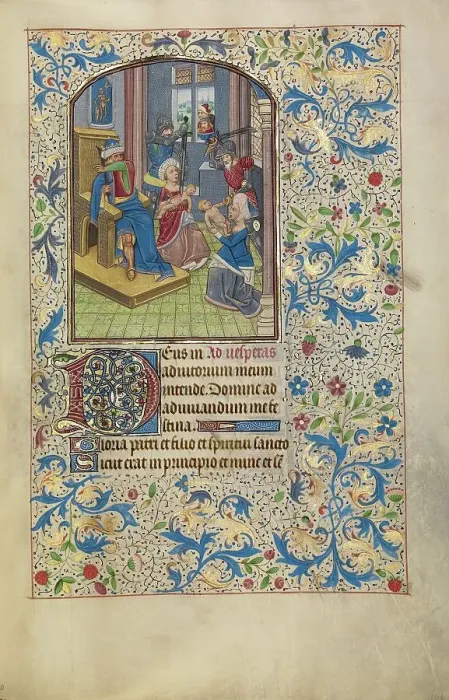 Deus in Ad uesperas
adiutorium meum
intende. Domine ad
adiuuandum me fe
stina.
Gloria patri et filio et spiritui sancto
Sicut erat in principio et nunc et se